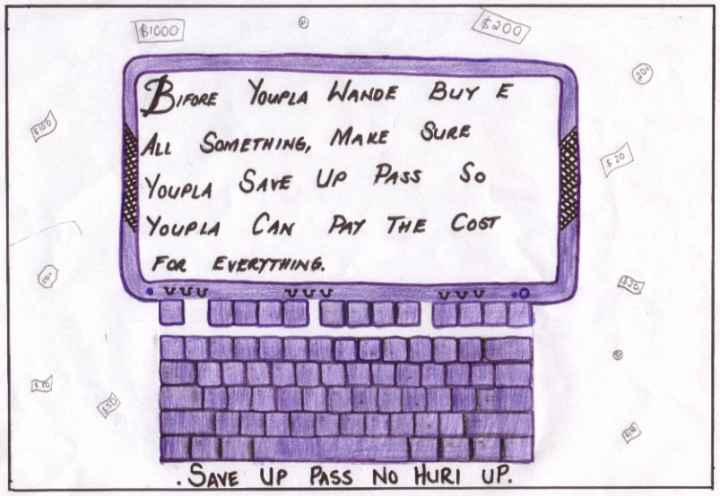 $1000
$200
BIFORE YOUPLA WANDE BUY E
ALL SOMETHING, MAKE SURE
YOUPLA SAVE UP PASS SO
YOUPLA CAN PAY THE COST
FOR EVERYTHING.
$100
$20
$20
.SAVE UP PASS NO HURI UP.